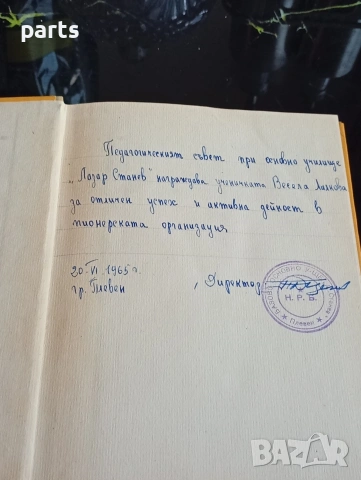 parts
Педагогическият съвет при основно училище
„Лазар Станев" награждава ученичката Весела Лалкова
за отличен успех и активна дейност в
пионерската организация
20.VI.1965 г.
гр. Плевен
, Директор:
ОСНОВНО УЧИЛИЩЕ
Н. Р. Б.
Плевен
BAZAR